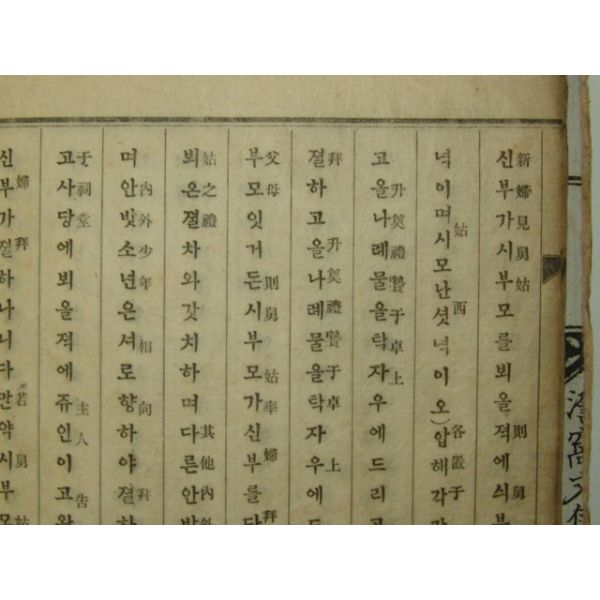 신부가시부모를뵈올져에싀부
新婦見舅姑 則 舅
녁이며시모난셧녁이오)압해각각
姑 西 各置于
고올나례물을탁자우에드리고
升奠禮贄于卓上
졀하고올나례물을탁자우에드
拜 升奠禮贄于卓 上
부모잇거든시부모가신부를다
父母 則舅 姑率 婦 拜
뵈온졀차와갓치하며다른안밧
姑之禮 其他內外
며안밧소년은셔로향하야졀하
內外少年 相 向 拜
고사당에뵈올져에쥬인이고
于祠堂 主人 告
신부가졀하나니다만약시부모
婦 拜 若 舅 姑